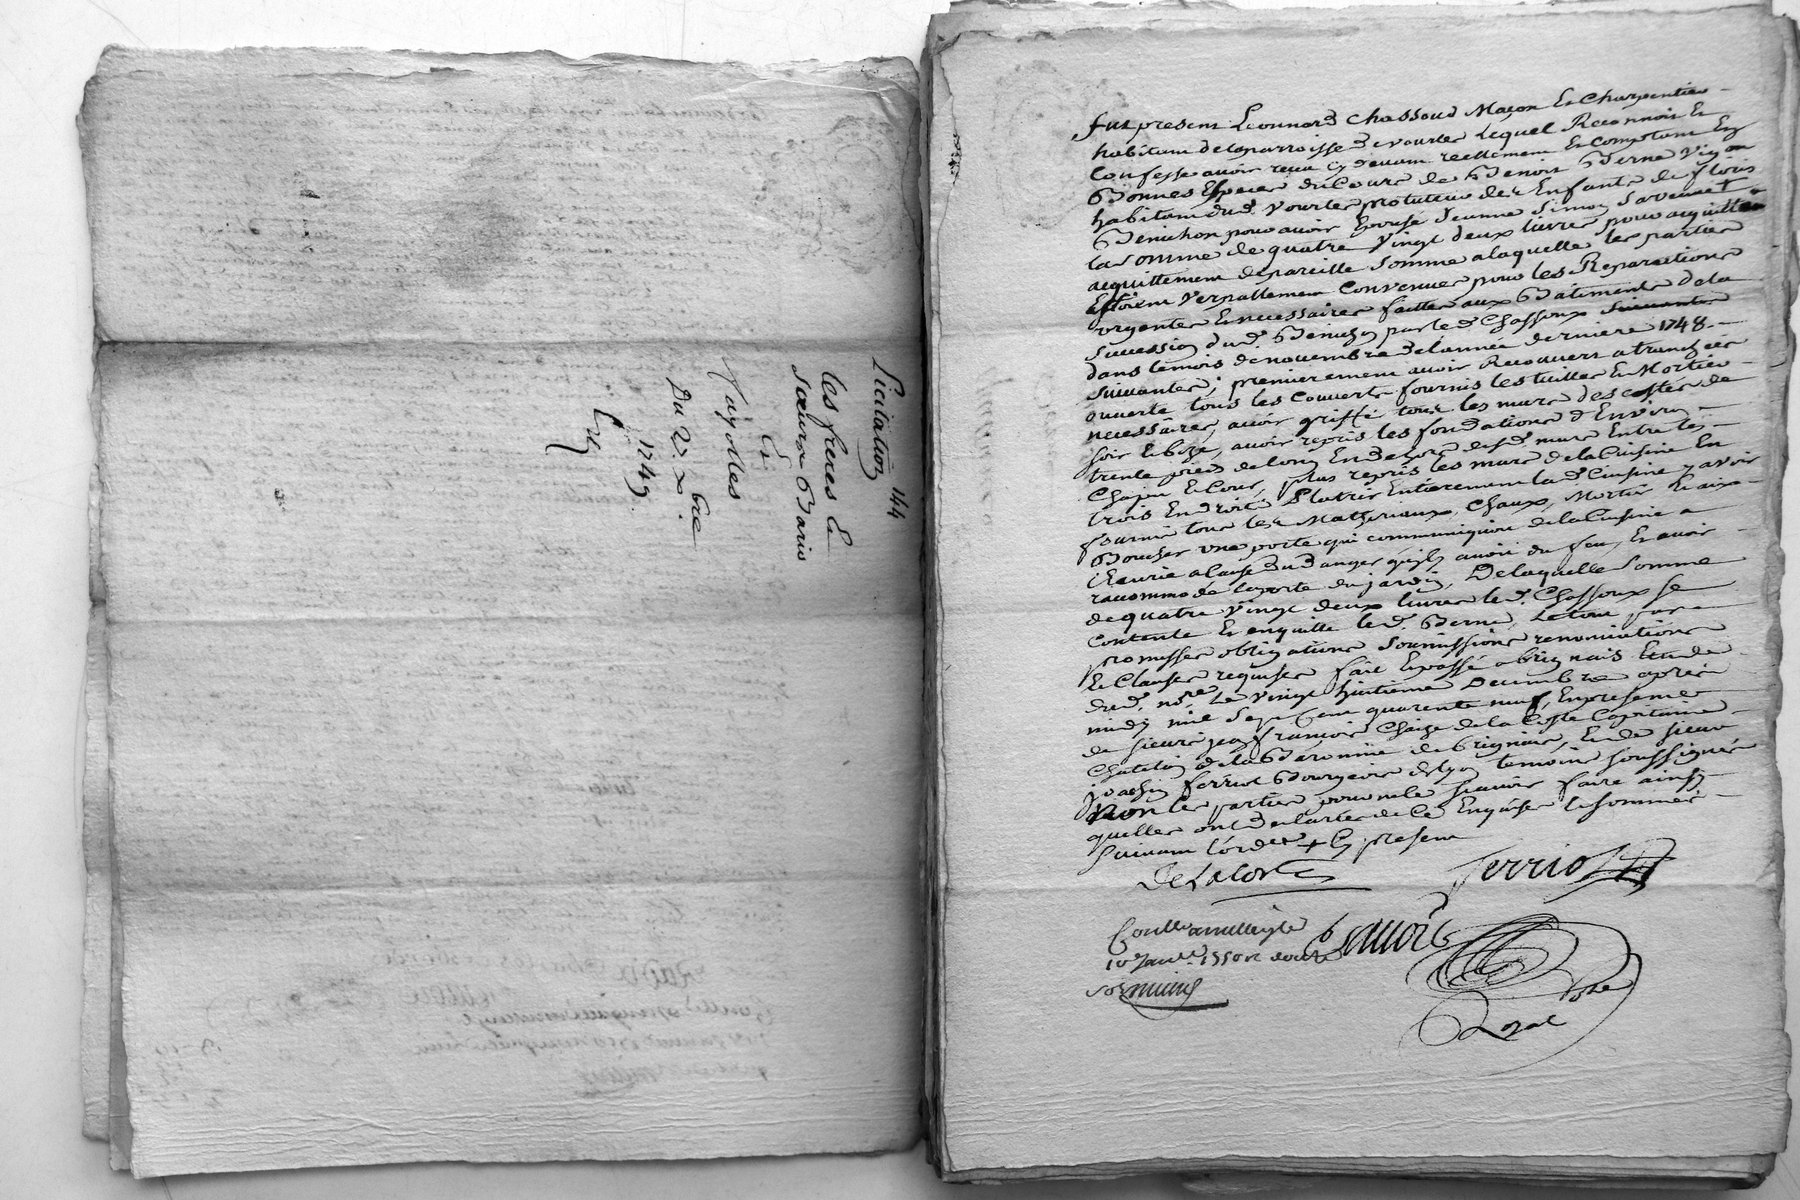 144
Licitation
les freres &
sœurs Bario
Et
Fayolles
Du 2 Xbre
1749
Fut present Leonnard Chassoud Maçon & Charpentier
habitant de la parroisse de vourles Lequel Reconnoit &
Confesse avoir receu cy devant reellement & Comptant En
Bonnes Espece du Cours de Benoit Berne Vigon
habitant dud. Vourles protuteur des Enfants de
Benichon pour avoir Epousé Jeanne
la somme de quatre Vingt deux livres pour
acquittement de pareille somme a laquelle les parties
Estoient Verpallement Convenues pour les Reparations
urgentes & necessaires faittes aux Batiments de la
succession dud. Benichon par led. Chassoux
dans le mois de novembre de l'année derniere 1748
suivantes; premierement avoir Recouvert a tranchee
ouverte tous les Couverts fournis les tuilles & Mortier
necessaire, avoir griffé tous les murs des costes de
soir & bize, avoir repris les fondations d'Environ
trente pieds de long En dehors desd. murs Entre les
Chapit & Cour, plus repris les murs de la Cuisine En
trois Endroits Platrir Entierement lad. Cuisine y avoir
fourni tous les Matheriaux, Chaux, Mortier
Boucher une porte qui communiquoit de la Cuisine a
l'Ecurie a Cause du danger qu'il y avoit du feu, & avoir
racommodé la porte du jardin, De laquelle somme
de quatre Vingt deux livres led. Chassoux se
Contente & en quitte led. Berne, Le tout par
promisses obligations soumissions renonciations
& Clauses requises fait & passé a brignais Etude
dud. nore. Le Vingt huitieme Decembre apres
midy mil sept Cent quarente neuf, En presence
de sieurs jean françois Chaize de la Coste Capitaine
Chatelain de la Baronnie de brignais, & de sieur
joachin ferriol Bourgeois de Lyon temoins soussignés
non les parties pour ne le scavoir faire ainsy
quelles ont declarées de Ce Enquises & sommées
suivant l'ordce + Cy present
De Lacoste Ferriol
10e Janvr. 1750
nore
Royal